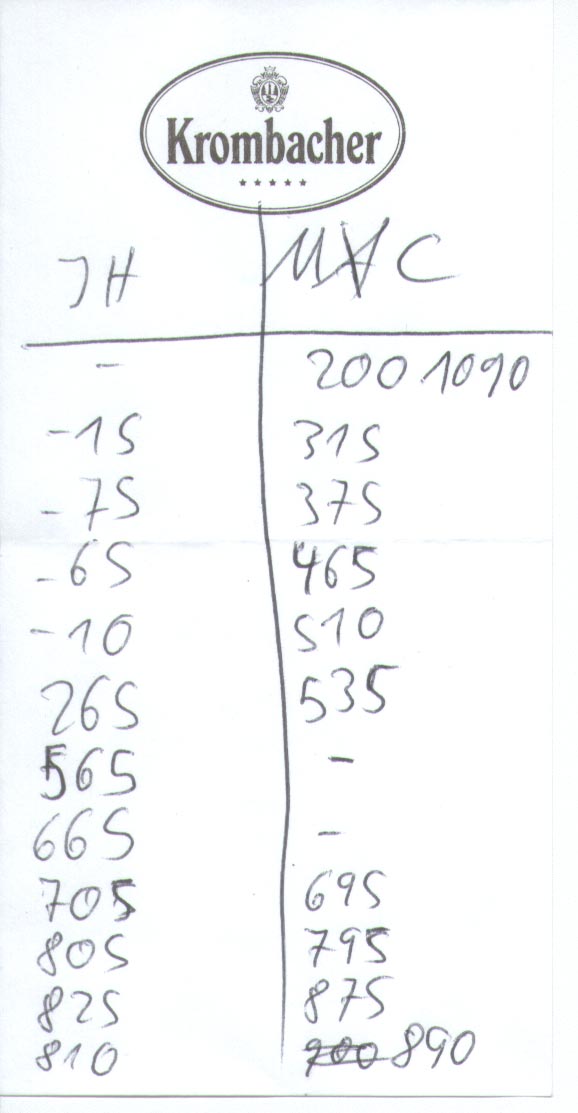 Krombacher
JH MC
- 200 1090
-15 315
-75 375
-65 465
-10 510
265 535
565 -
665 -
705 695
805 795
825 875
810 700 890